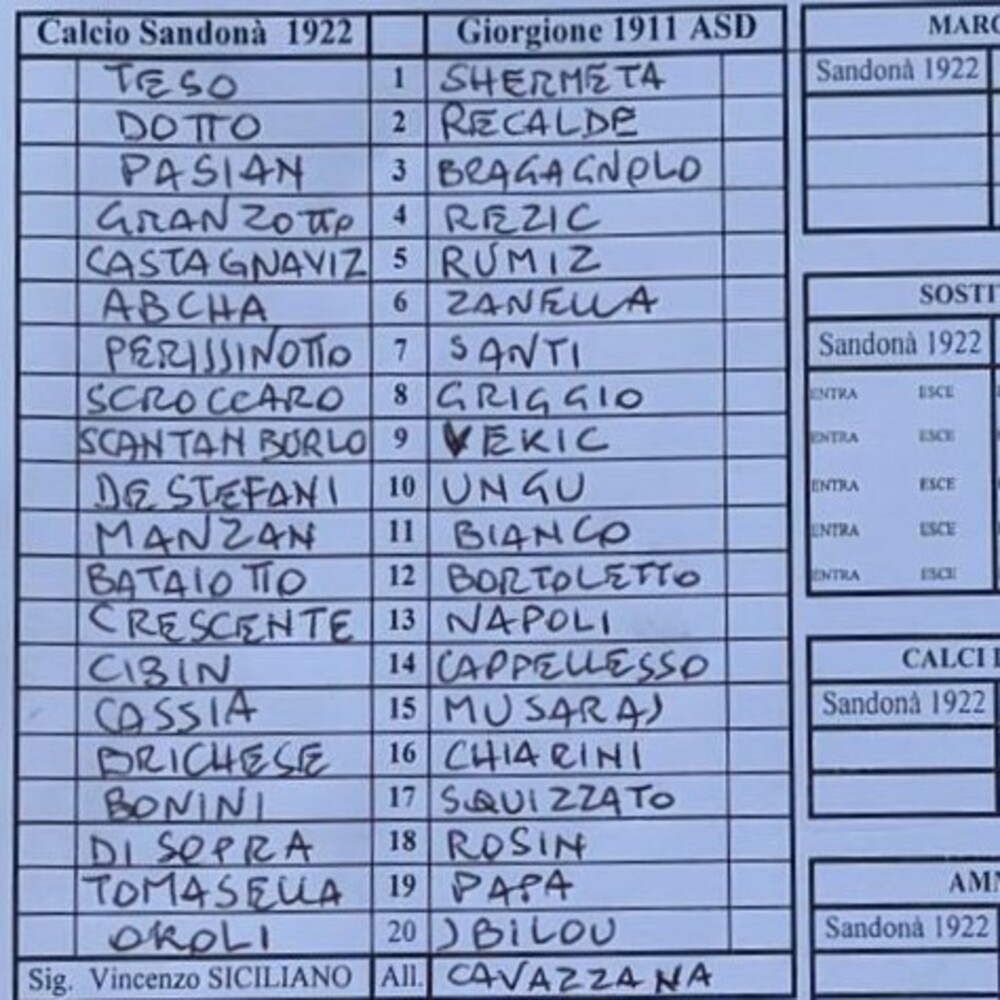 Calcio Sandonà 1922 Giorgione 1911 ASD
TESO 1 SHERMETA
DOTTO 2 RECALDE
PASIAN 3 BRAGAGNOLO
GRANZOTTO 4 REZIC
CASTAGNAVIZ 5 RUMIZ
ABCHA 6 ZANELLA
PERISSINOTTO 7 SANTI
SCROCCARO 8 GRIGGIO
SCANTAMBURLO 9 VEKIC
DE STEFANI 10 UNGU
MANZAN 11 BIANCO
BATAIOTTO 12 BORTOLETTO
CRESCENTE 13 NAPOLI
CIBIN 14 CAPPELLESSO
CASSIA 15 MUSARAJ
BRICHESE 16 CHIARINI
BONINI 17 SQUIZZATO
DI SOPRA 18 ROSIN
TOMASELLA 19 PAPA
OKOLI 20 JBILOU
Sig. Vincenzo SICILIANO All. CAVAZZANA
MARC
Sandonà 1922
SOSTI
Sandonà 1922
ENTRA ESCE
ENTRA ESCE
ENTRA ESCE
ENTRA ESCE
ENTRA ESCE
CALCI
Sandonà 1922
AM
Sandonà 1922